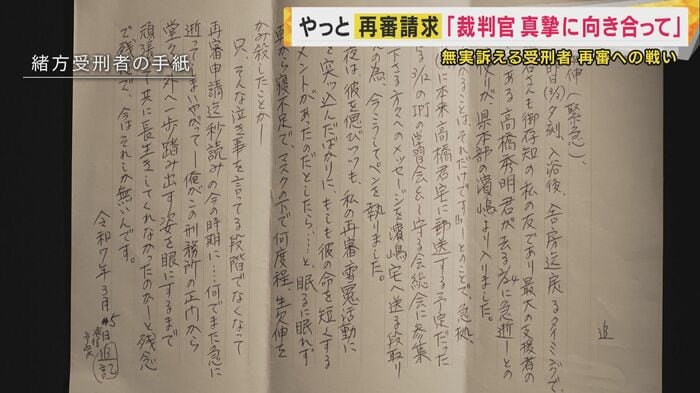 やっと 再審請求 「裁判官 真摯に向き合って」
無実訴える受刑者 再審への戦い
緒方受刑者の手紙
追
伸（緊急）、
夕刻、入浴後、舎房迄戻るタイミングで、
さんも御存知の私の友であり最大の支援者の
ある高橋秀明君が去る2/24に急逝ーとの
が、県本部の濱嶋より入りました。
ることは、それだけです‼ーとのことで、急拠、
に本来、高橋君宅に郵送する予定だった
3/12のPMの学習会＆守る会総会に参集
下さる方々へのメッセージを濱嶋宅へ送る段取り
の為、今こうしてペンを執りました。
夜は、彼を偲びつつも、私の再審・雪冤活動に
を突っ込んだばかりに、もしも彼の命を短くする
メントがあったのだとしたら…と、眠るに眠れず
から寝不足で、マスクの下で何度程、生欠伸を
かみ殺したことかー
只、そんな泣き事を言ってる段階でなくなって
再審申請迄秒読みの今の時期に…何でまた急に
逝ってしまいやがってー俺がこの刑務所の正門から
堂々と外へ一歩踏み出す姿を眼にするまで
頑張って共に長生きしてくれなかったのかーと残念
で残念で、今はそれしか無いんです。
令和7年3月5日追記